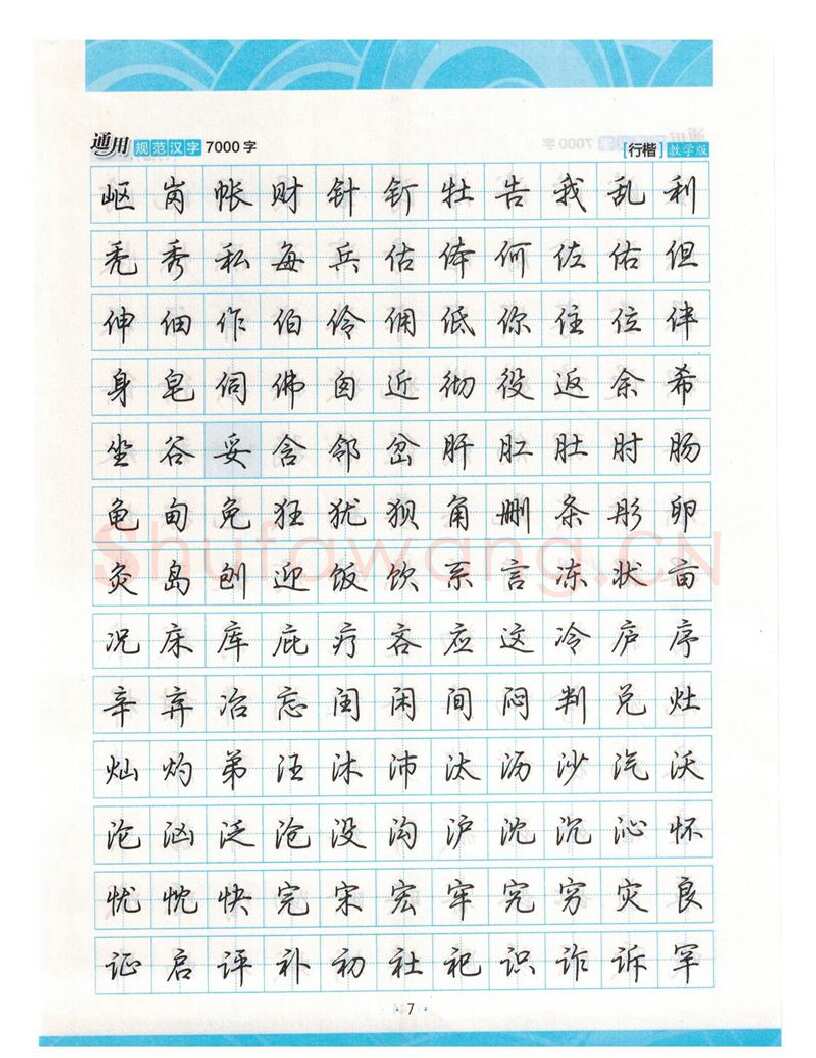 通用 规范汉字 7000 字 [行楷] 教学版
岖岗帐财针钉牡告我乱利
秃秀私每兵估体何佐佑但
伸佃作伯伶佣低你住位伴
身皂伺佛囱近彻役返余希
坐谷妥含邻岔肝肛肚肘肠
龟甸免狂犹狈角删条彤卵
灸岛刨迎饭饮系言冻状亩
况床库庇疗吝应这冷庐序
辛弃冶忘闰闲间闷判兑灶
灿灼弟汪沐沛汰沥沙汽沃
沦汹泛沧没沟沪沈沉沁怀
忧忱快完宋宏牢究穷灾良
证启评补初社祀识诈诉罕
· 7 ·
Shufawang.CN